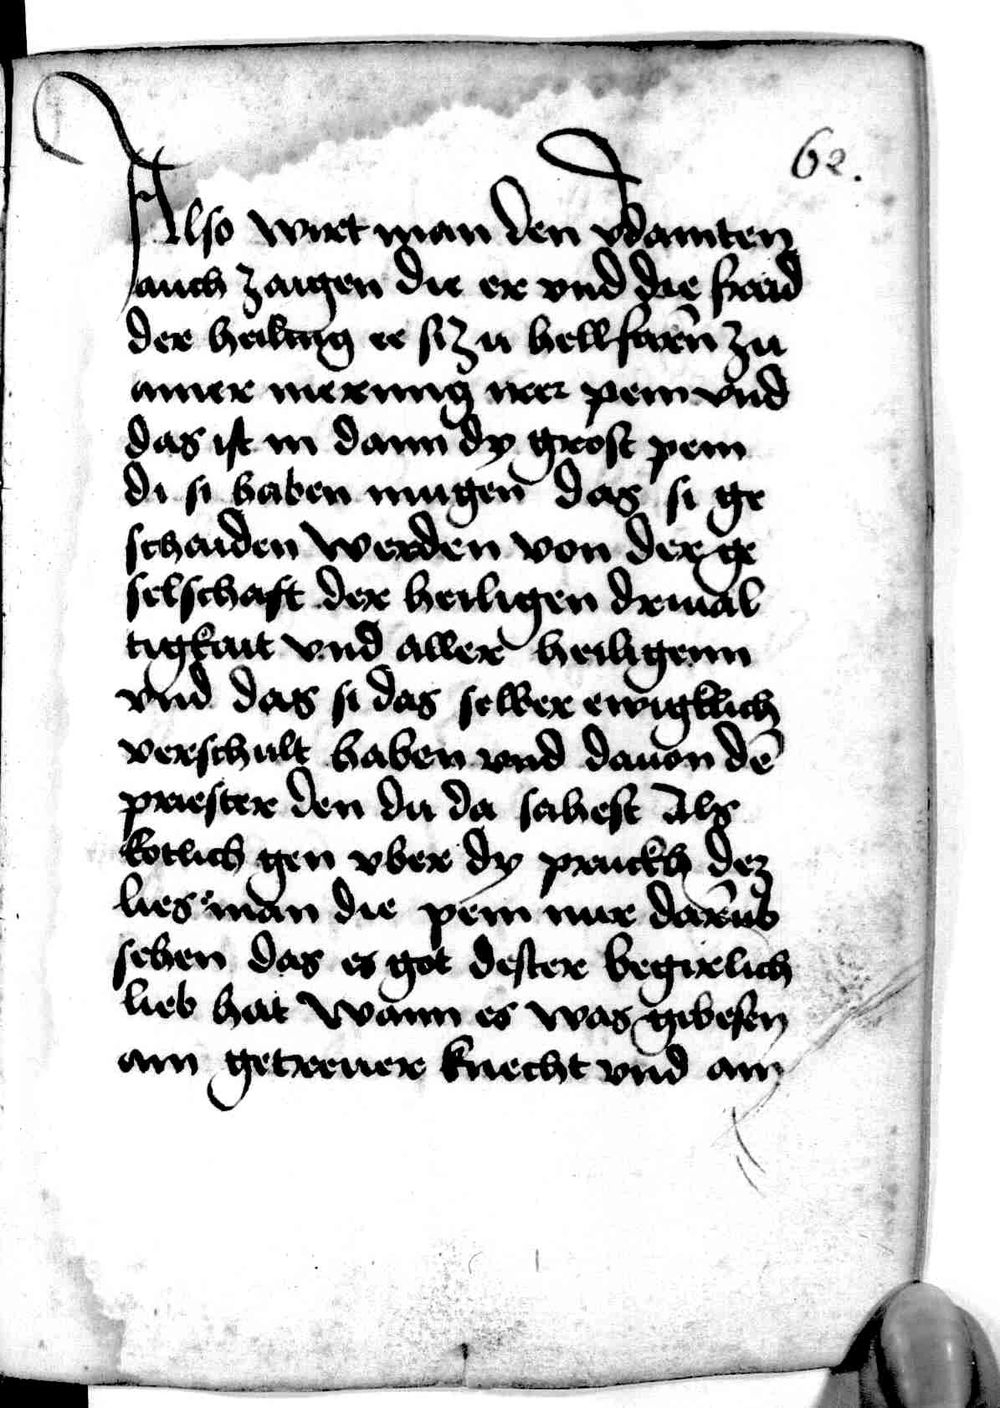 62.
Also wirt man den vdamten
auch zaigen die er vnd die fraid
der heiling ee si zu hell farn̄ zu
ainer merung irer pein vnd
das ist in dann dy grost pein
di si haben mugen das si ge
schaiden werden von der ge
selschaft der heiligen driual
tigkait vnd aller heiligenn
vnd das si das selber ewigklich
verschult haben vnd dauon dē
priester den du da sahest Als
kotlich gen vber dy pruckh dez
lies man die pein nur darūb
sehen das es got dester begirlich
lieb hat Wann es was gwesen
ain getrewer knecht vnd ain